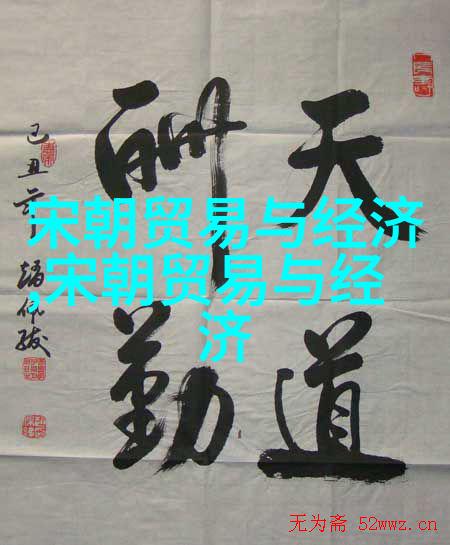 天道
酬勤
己丑
宋朝贸易与经济
,宋朝贸易与经
济
无为斋 52wwz.cn